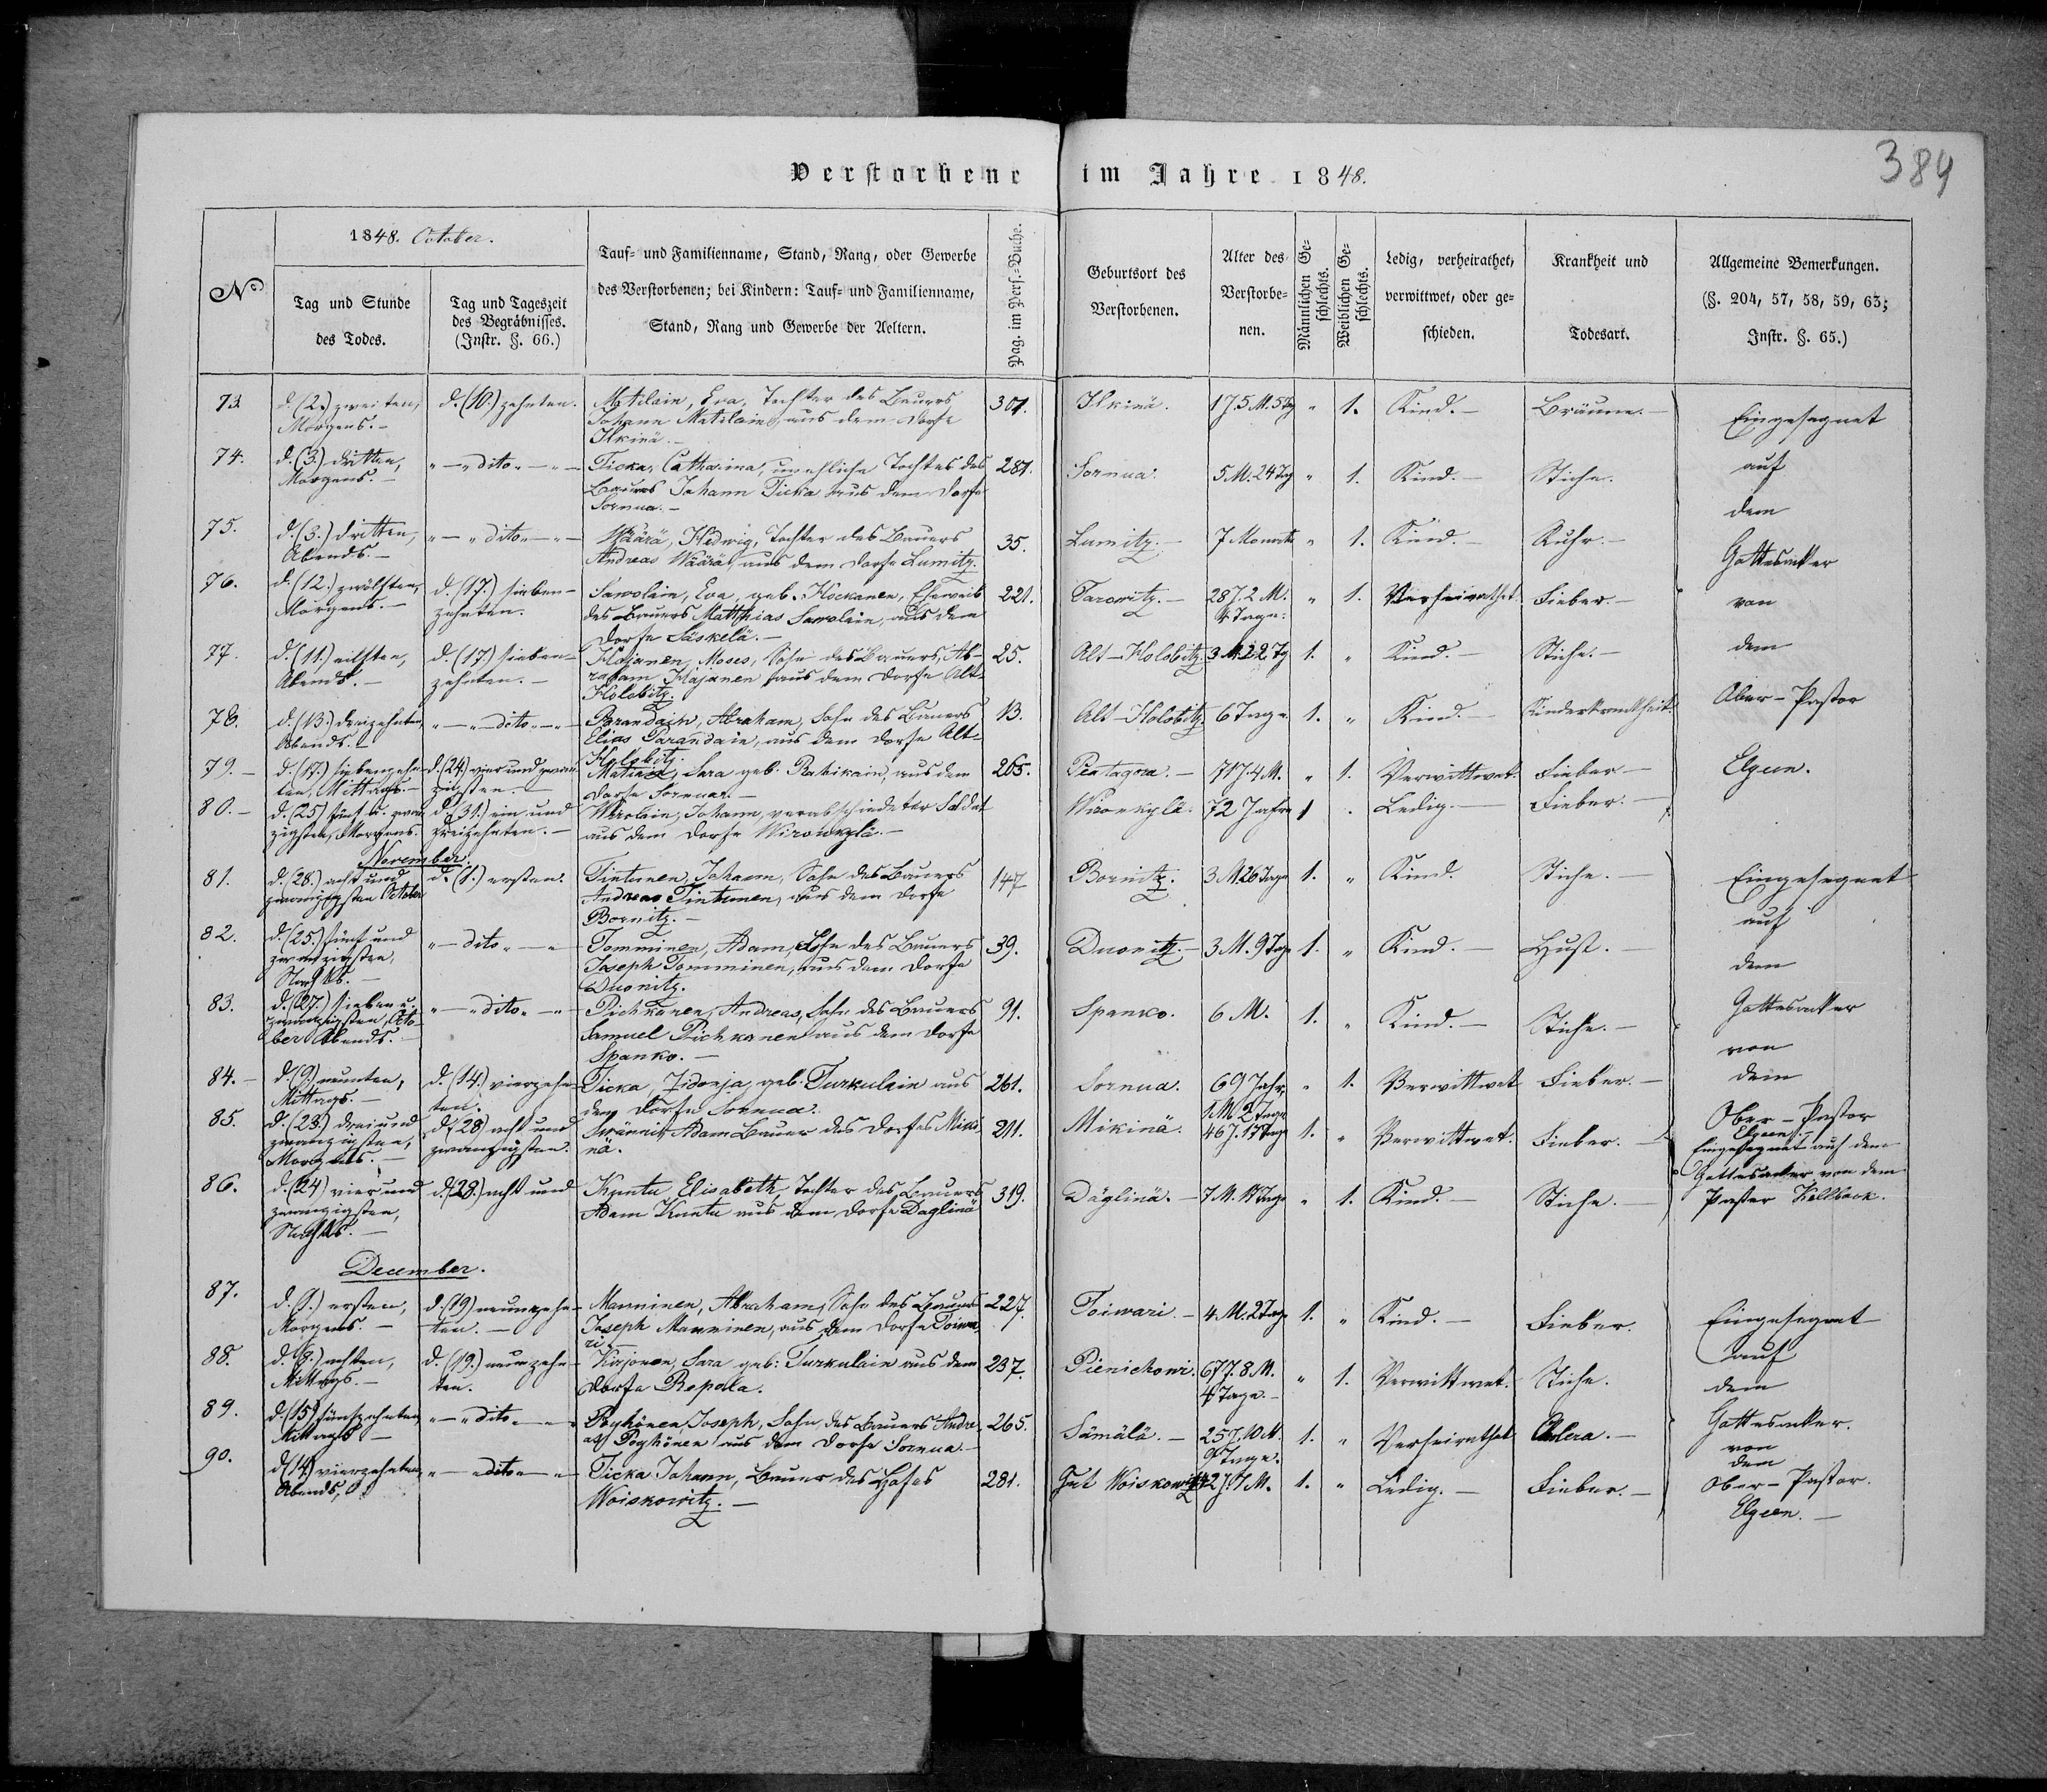 384
Verstorbene im Jahre 1848.
No
1848. October.
Tag und Stunde
des Todes.
Tag und Tageszeit
des Begräbnisses.
(Instr. §. 66.)
Tauf- und Familienname, Stand, Rang, oder Gewerbe
des Verstorbenen; bei Kindern: Tauf- und Familienname,
Stand, Rang und Gewerbe der Aeltern.
Pag. im Pers.-Buche.
Geburtsort des
Verstorbenen.
Alter des
Verstorbe-
nen.
Männlichen Ge-
schlechts.
Weiblichen Ge-
schlechts.
Ledig, verheirathet,
verwittwet, oder ge-
schieden.
Krankheit und
Todesart.
Allgemeine Bemerkungen.
(§. 204, 57, 58, 59, 63;
Instr. §. 65.)
73. d. (2.) zweiten, d. (10.) zehnten. Matilain, Eva, Tochter des Bauers 301. Ilkinä. 1 J. 5 M. 5 Tg „ 1. Kind.- Bräune.- Eingesegnet
Morgens.- Johann Matilain, aus dem Dorfe
Ilkinä.-
74. d. (3.) dritten, „—„dito„—„ Ticka, Catharina, uneheliche Tochter des 281. Sornua. 5 M. 24 Tg „ 1. Kind.- Stiche. auf
Morgens.- Bauers Johann Ticka aus dem Dorfe
Sornua.- dem
75. d. (3.) dritten, „—„dito„—„ Wäärä, Hedwig, Tochter des Bauers 35. Lumitz.- 7 Monate „ 1. Kind.- Ruhr.-
Abends.- Andreas Wäärä, aus dem Dorfe Lumitz. Gottesacker
76. d. (12.) zwölften, d. (17.) sieben- Sawolain, Eva, geb. Hockanen, Eheweib 221. Tarowitz.- 28 J. 2 M. „ 1. Verheirathet. Fieber.- von
Morgens.- zehnten. des Bauers Matthias Sawolain, aus dem 4 Tage.
Dorfe Säskelä.-
77. d. (11.) eilften, d. (17.) sieben- Hajanen, Moses, Sohn des Bauers, Ab- 25. Alt-Holobitz. 3 M. 22 Tg 1. „ Kind.- Stiche.- dem
Abends.- zehnten.- raham Hajanen aus dem Dorfe Alt-
Holobitz.
78. d. (13.) dreizehnten, „—„dito„—„ Parandain, Abraham, Sohn des Bauers 13. Alt-Holobitz. 6 Tage. 1. „ Kind.- Kinderkrankheit. Ober-Pastor
Abends.- Elias Parandain, aus dem Dorfe Alt-
Holobitz.
79.- d. (17.) siebenzehn- d. (24.) vier und zwan- Matilain, Sara geb. Rahikain, aus dem 265. Pentagora.- 71 J. 4 M. „ 1. Verwittwet. Fieber.- Elgeen.
ten, Mittags.- zigsten.- Dorfe Sornua.-
80.- d. (25) fünf u. zwan- d. (31.) ein und Wirolain, Johann, verabschiedeter Soldat Wironkylä. 72 Jahre 1 „ Ledig.- Fieber.-
zigsten, Morgens. dreizehnten.- aus dem Dorfe Wironkylä.-
November.
81. d. (28.) acht und d. (1.) ersten. Tintunen, Johann, Sohn des Bauers 147 Bornitz. 3 M. 26 Tage 1. „ Kind. Stiche.- Eingesegnet
zwanzigsten October Andreas Tintunen, aus dem Dorfe
Bornitz.- auf
82. d. (25.) fünf und „—dito„—„ Tomminen, Adam, Sohn des Bauers 39. Duonitz.- 3 M. 9 Tage 1. „ Kind.- Hust.-
zwanzigsten, Joseph Tomminen, aus dem Dorfe dem
Nachts.- Duonitz.
83. d. (27.) sieben u. „—„dito„—„ Pichkanen, Andreas, Sohn des Bauers 91. Spanko. 6 M. 1. „ Kind.- Stiche.- Gottesacker
zwanzigsten Octo- Samuel Pichkanen aus dem Dorfe
ber Abends.- Spanko.- von
84.- d. (9.) neunten, d. (14.) vierzehn- Ticka, Fidorja, geb. Turkulain aus 261. Sornua. 69 Jahr, „ 1. Verwittwet Fieber.- dem
Mittags.- ten. dem Dorfe Sornua. 1 M 2 Tage
85. d. (23.) drei und d. (28.) acht und Swännit Adam Bauer des Dorfes Miki- 211. Mikinä. 46 J. 17 Tage 1. „ Verwittwet. Fieber.- Ober-Pastor
zwanzigsten, zwanzigsten. nä. Elgeen.-
Morgens.- Eingesegnet auf dem
86. d. (24) vier und d. (28.) acht und Kuntu, Elisabeth, Tochter des Bauers 319. Däglinä.- 7 M. 17 Tage „ 1. Kind.- Stiche.- Gottesacker von dem
zwanzigsten, Adam Kuntu aus dem Dorfe Daglinä Pastor Hellback.
Nachts.-
December.
87. d. (1.) ersten, d. (19) neunzehn- Manninen, Abraham, Sohn des Bauers 227. Toiwari.- 4 M. 2 Tage 1. „ Kind.- Fieber. Eingesegnet
Morgens.- ten.- Joseph Manninen, aus dem Dorfe Toiwa-
ri.-
88. d. (8.) achten, d. (19.) neunzehn- Kirjonen, Sara geb: Turkulain aus dem 237. Pienichowi. 67 J. 8 M. „ 1. Verwittwet. Stiche. auf
Mittags.- ten. Dorfe Repola. 4 Tage.- dem
89. d. (15) fünfzehnten „—„dito„—„ Poyhönen, Joseph, Sohn des Bauers Andre- 265. Sämälä.- 25 J. 10 M. 1. „ Verheirathet Cholera.- Gottesacker.
Mittags- as Poyhönen aus dem Dorfe Sornua.- 9 Tage. von
90. d. (14) vierzehnten „—„dito„—„ Ticka Johann, Bauer des Hofes 281. Gut Woiskowitz 42 J. 1 M. 1. „ Ledig.- Fieber.- dem
Abends, Woiskowitz.- Ober-Pastor.
Elgeen.-